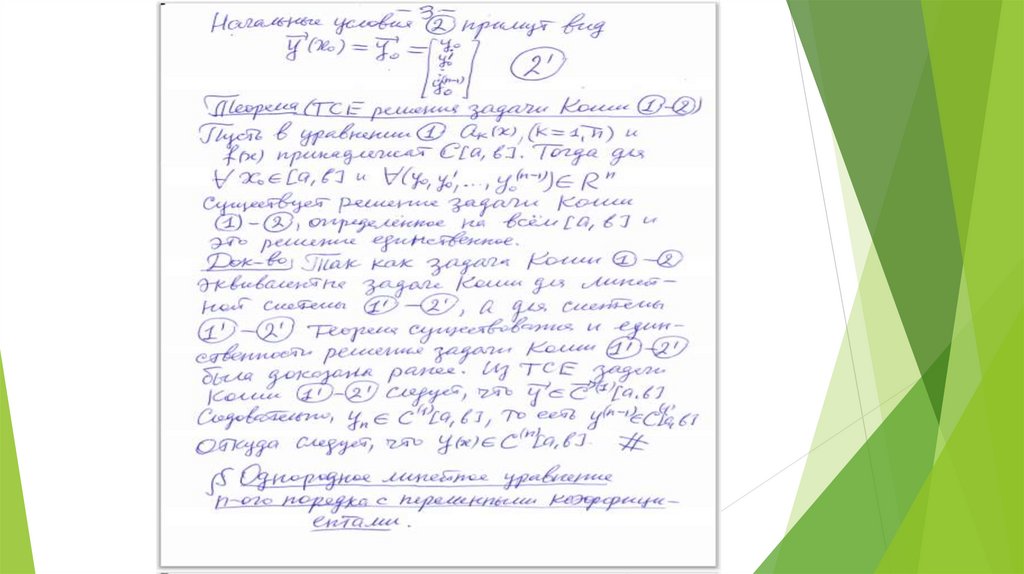 -3-
Начальные условия ② примут вид
ȳ(x₀) = ȳ₀ = [y₀ y₀' ⋮ y₀⁽ⁿ⁻¹⁾] ②'
Теорема (ТСЕ решения задачи Коши ①-②)
Пусть в уравнении ① aₖ(x), (k=1,n̄) и
f(x) принадлежат C[a,b]. Тогда для
∀ x₀∈[a,b] и ∀(y₀,y₀',...,y₀⁽ⁿ⁻¹⁾)∈Rⁿ
существует решение задачи Коши
①-②, определённое на всём [a,b] и
это решение единственное.
Док-во Так как задача Коши ①-②
эквивалентна задаче Коши для линей-
ной системы ①'-②', а для системы
①'-②' теорема существования и един-
ственности решения задачи Коши ①'-②'
была доказана ранее. Из ТСЕ задачи
Коши ①'-②' следует, что ȳ∈C⁽¹⁾[a,b]
Следовательно, yₙ∈C⁽¹⁾[a,b], то есть y⁽ⁿ⁻¹⁾∈C⁽¹⁾[a,b]
Откуда следует, что y(x)∈C⁽ⁿ⁾[a,b]. #
§ Однородное линейное уравнение
n-ого порядка с переменными коэффици-
ентами.